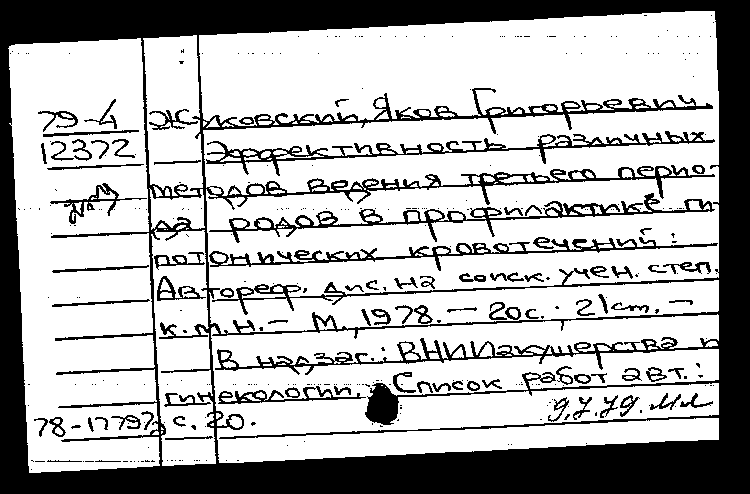 79-4 Жуковский, Яков Григорьевич.
12372 Эффективность различных
методов ведения третьего перио-
да родов в профилактике ги-
потонических кровотечений:
Автореф. дис. на соиск. учен. степ.
к.м.н. — М., 1978. — 20с.; 21cm. —
В надзаг.: ВНИИакушерства и
гинекологии. Список работ авт.:
78-17797 с. 20. 9.I.79.